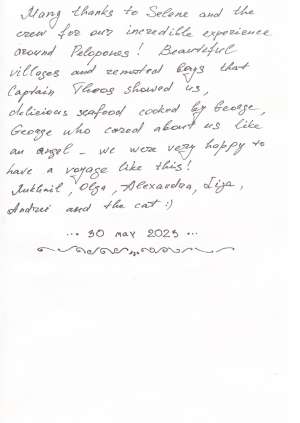 Many thanks to Selene and the
crew for our incredible experience
around Pelopones! Beautiful
villages and remoted bays that
Captain Theos showed us,
delicious seafood cooked by George,
George who cared about us like
an angel - we were very happy to
have a voyage like this!
Mikhail, Olga, Alexandra, Liza,
Andrei and the cat :)
... 30 may 2023 ...